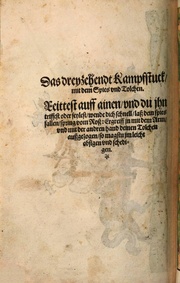 Das dreyzehendt Kampfstuck/
mit dem Spies vnd Tolchen.
Reittest auff ainen/vnd du jhn
triffest oder felest/wende dich schnell/laß dein spies
fallen/spring vom Roß/Ergreiff in mit dem Arme/
vnd mit der andren hand deinen Tolchen
auffgezogen/so magstu jm leicht
absigen vnd schedi-
gen.